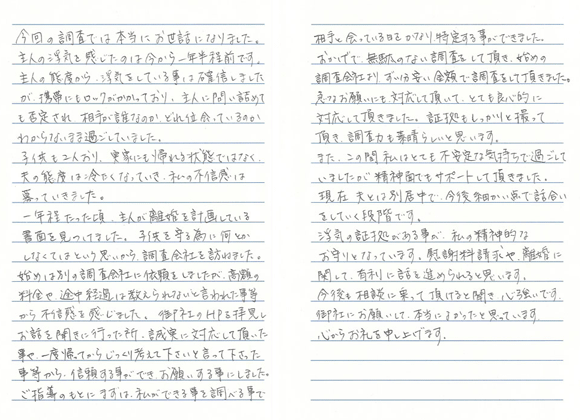 今回の調査では本当にお世話になりました。
主人の浮気を感じたのは今から一年半程前です。
主人の態度から、浮気をしている事は確信しました
が、携帯にもロックがかかっており、主人に問い詰めて
も否定され、相手が誰なのか どれ位会っているのか
わからないまま過ごしていました。
子供も2人おり、実家にも帰れる状態ではなく、
夫の態度は冷たくなっていき、私の不信感は
募っていきました。
一年程たった頃、主人が離婚を計画している
書面を見つけてました。子供を守る為に何とか
しなくてはという思いから、調査会社を訪ねました。
始めは別の調査会社に依頼をしましたが、高額の
料金や、途中経過は教えられないと言われた事等
から不信感を感じました。御社のHPを拝見し
お話を聞きに行った所、誠実に対応して頂いた
事や、一度帰ってからじっくり考えて下さいと言って下さった
事等から、信頼する事ができ、お願いする事にしました。
ご指導のもとにまずは、私ができる事を調べる事で
相手と会っている日をかなり特定する事ができました。
おかげで、無駄のない調査をして頂き、始めの
調査会社より、ずい分安い金額で調査をして頂きました。
急なお願いにも対応して頂いて、とても良心的に
対応して頂きました。証拠もしっかりと撮って
頂き、調査力も素晴らしいと思います。
また、この間 私はとても不安定な気持ちで過ごして
いましたが精神面でもサポートして頂きました。
現在 夫とは別居中で、今後細かい点で話合い
をしていく段階です。
浮気の証拠がある事が、私の精神的な
お守りとなっています。慰謝料請求や、離婚に
関して、有利に話を進められると思います。
今後も相談に乗って頂けると聞き 心強いです。
御社にお願いして、本当によかったと思っています
心からお礼を申し上げます。